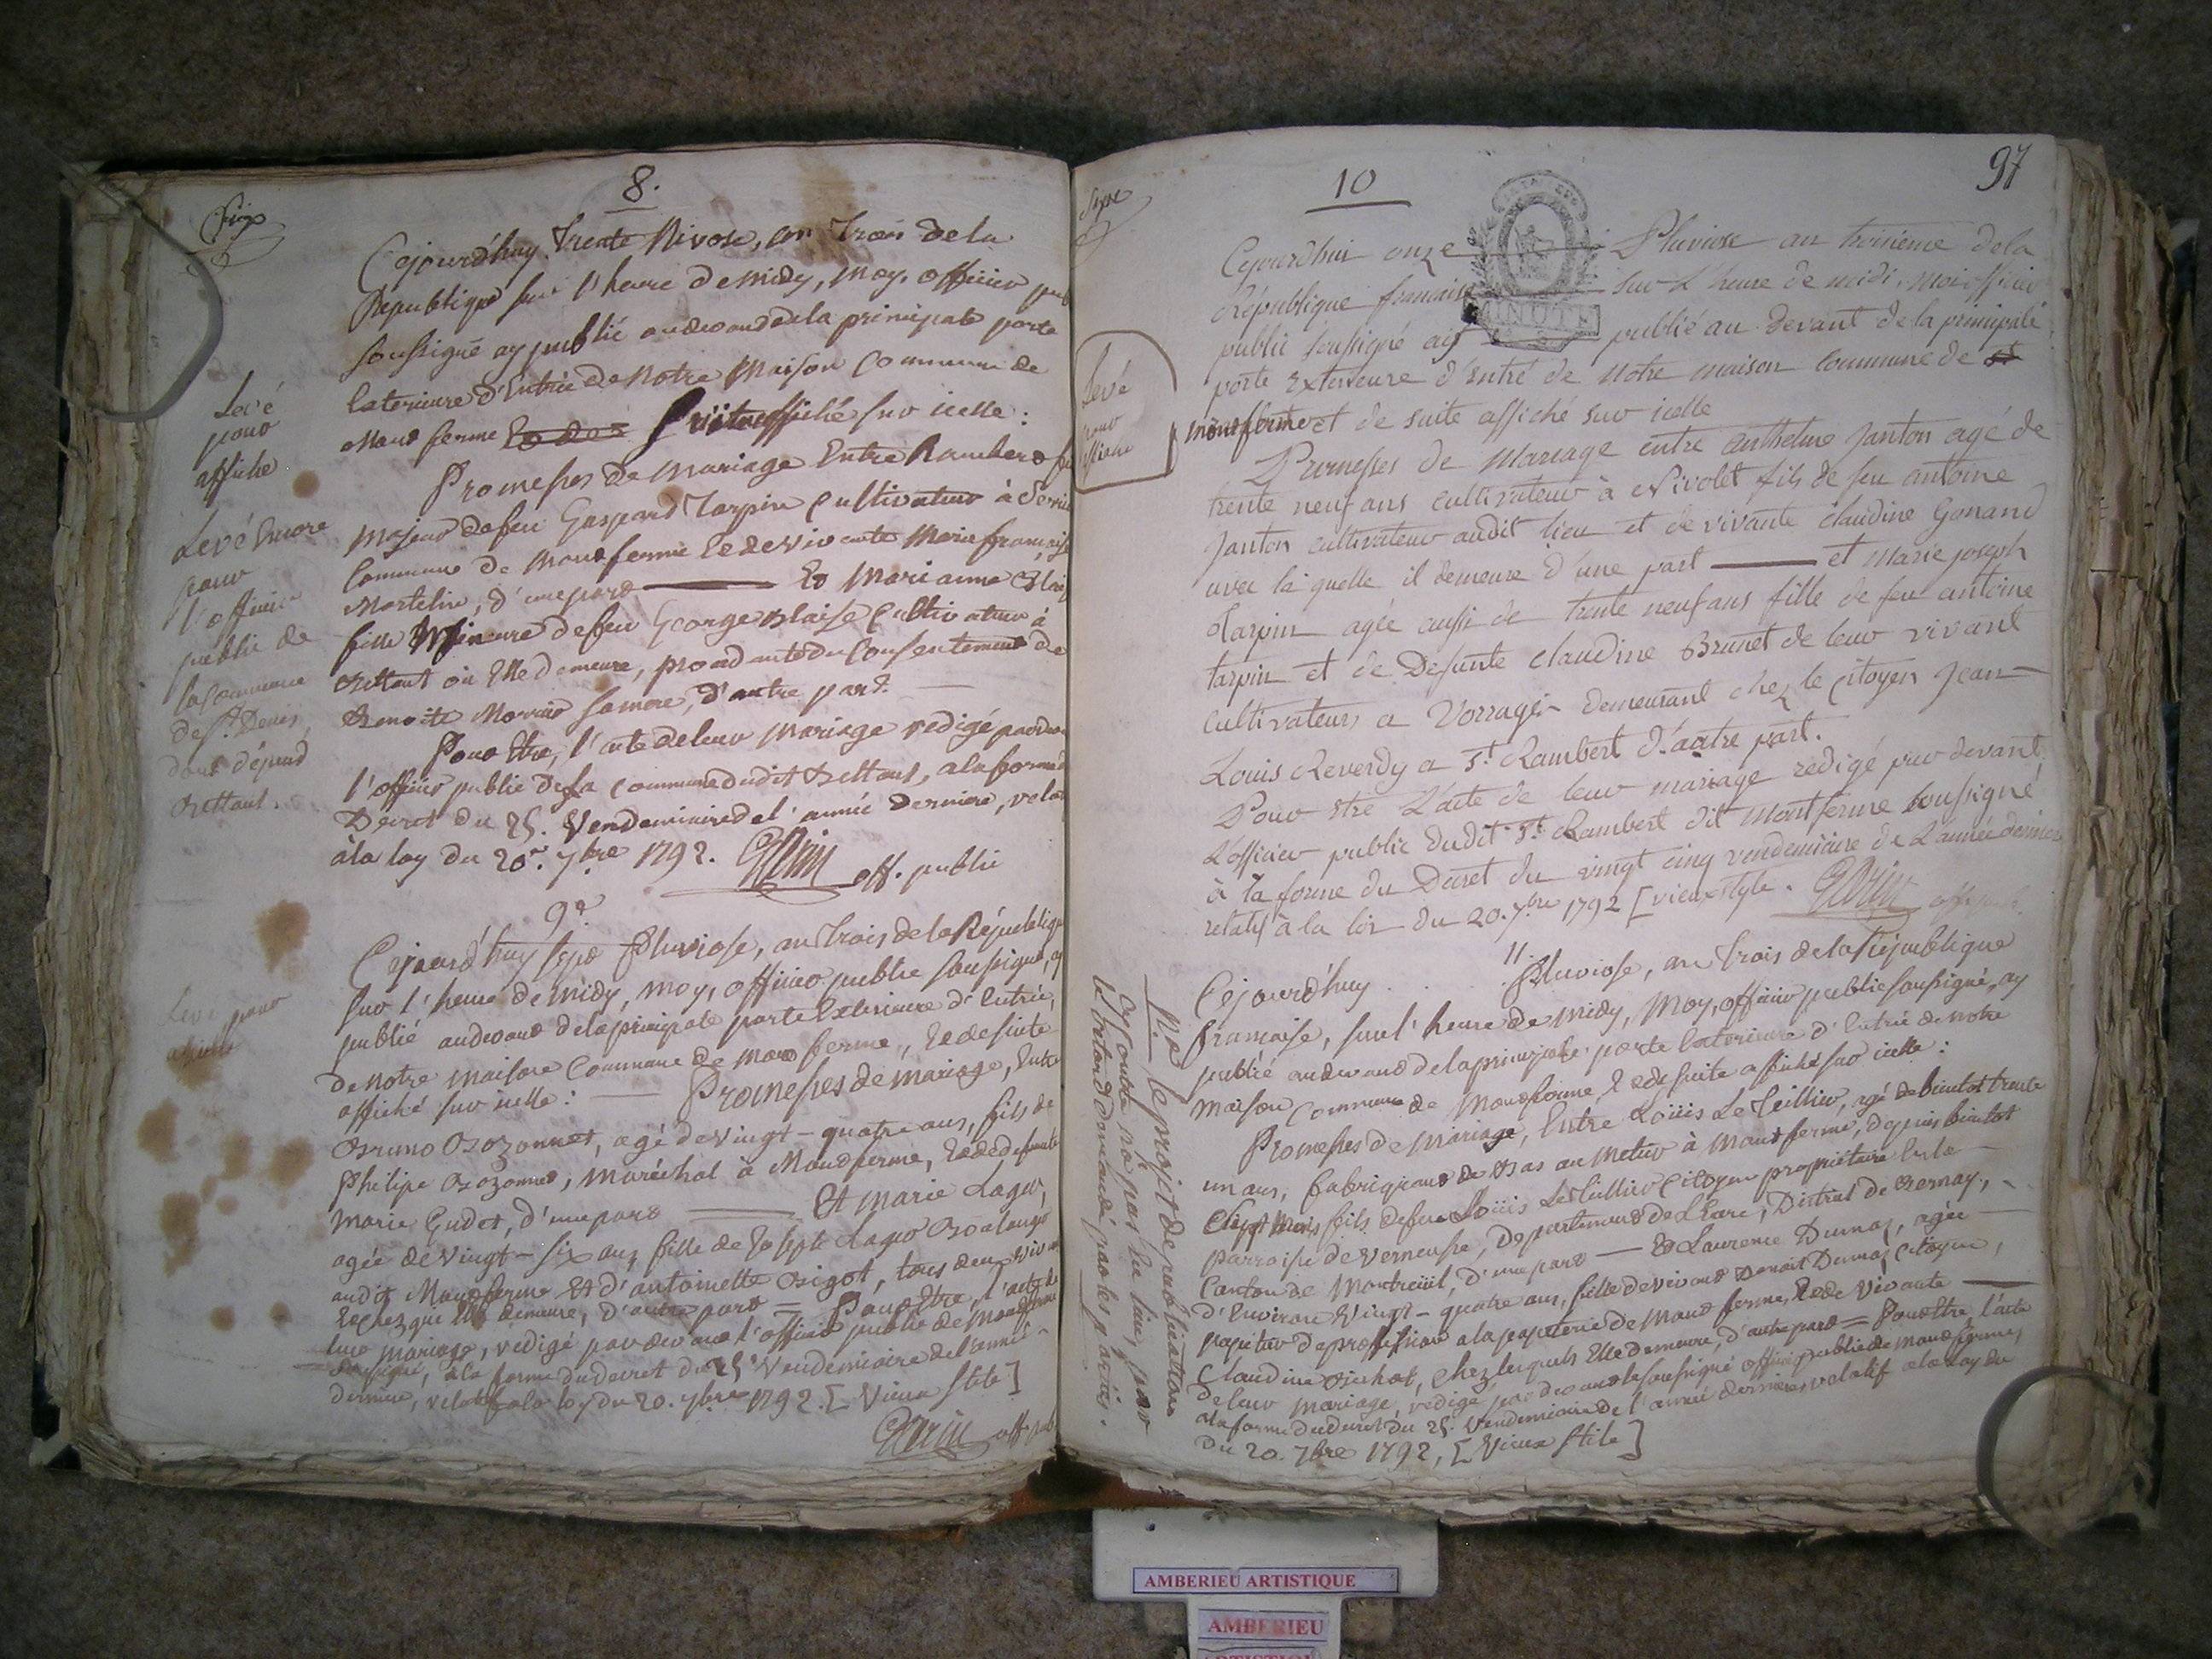 8.
Cejourd'huy trente Nivose, an trois de la
Republique sur l'heure de midy, moy, officier pub
soussigné ay publié audevand de la principale porte
Exterieure d'Entrée de Notre Maison Commune de
Mond ferme affiché sur icelle :
Promesses de Mariage Entre Rambert
majeur de feu Gaspard Tarpin Cultivateur à
Commune de Mondferme Et de vivante Marie française
Martelin, d'une pard Et Marianne Blaise
fille Mineure de feu George Blaise Cultivateur à
Bettant où Elle demeure, du Consentement de
Benoite sa mere, d'autre part.
Pour Etre, l'acte de leur Mariage redigé pardevant
l'officier public de la Commune dudit Bettant, a la forme du
Decret du 25. Vendemiaire de l'année Derniere, relat
à la loy du 20. 7bre 1792.
off. public
Levé
pour
affiche
Levé Encore
pour
l'officier
public de
la Commune
de St. Denis,
dont dépend
Bettant.
9e.
Cejourd'huy sept Pluviose, an trois de la République
sur l'heure de Midy, moy, officier public soussigné, ay
publié audevand de la principale porte Exterieure d'Entrée,
de Notre Maison Commune de Mond ferme, Et de suite
affiché sur icelle : Promesses de mariage, Entre
Bruno Bozonnet, agé de vingt-quatre ans, fils de
Philipe Bozonnet, maréchal à Mondferme, Et de defunte
Marie Gudet, d'une pard Et Marie Lager,
agée de vingt-six ans, fille de Joseph Lager Boulanger
audit Mondferme Et d'antoinette Bigot, tous deux vivans
Et chez qui Elle demeure, d'autre pard = Pour Etre, l'acte de
leur mariage, redigé pardevant l'officier public de Mondferme
soussigné, à la forme du decret du 25 Vendemiaire de l'année
derniere, relatif a la loy du 20. 7bre 1792. [ Vieux stile ]
off. pub
Levé pour
affiche
97
10
Cejourd'hui onze Pluviose an troisieme de la
République francaise sur L'heure de midi, moi officier
public soussigné ay publié au devant de la principale
porte Exterieure d'Entré de Notre maison Commune de
montferme et de suite affiché sur icelle
Promesses de Mariage entre anthelme Janton agé de
trente neuf ans cultivateur à Nivolet fils de feu antoine
Janton cultivateur audit lieu et de vivante claudine Gonand
avec la quelle il demeure d'une part et Marie joseph
Tarpin agée aussi de trente neuf ans fille de feu antoine
tarpin et de Defunte claudine Brunet de leur vivant
cultivateurs a Vorrages demeurant chez le Citoyen Jean
Louis Reverdy a St. Rambert d'autre part.
Pour etre L'acte de leur mariage redigé par devant
L'officier public dudit St. Rambert dit montferme soussigné
à la forme du Decret du vingt cinq vendemiaire de L'année derniere
relatif à la loi du 20. 7bre 1792 [ vieux style.
Levé
pour
affiche
11.
Cejourd'huy . . . Pluviose, an trois de la République
française, sur l'heure de midy, Moy, officier public soussigné, ay
publié audevand de la principale porte Exterieure d'Entrée de Notre
Maison Commune de Mondferme, Et de suite affiché sur icelle :
Promesses de Mariage, Entre Loüis Le Teillier, agé de bientot trente
un ans, fabriquand de Bas au Metier à Mondferme, depuis bientot
mois fils de feu Loüis Le Teillier Citoyen proprietaire En la
parroisse de Verneusse, Departement de L'Eure, District de Bernay,
Canton de Montreüil, d'une pard Et Laurence Dumas, agée
d'Environ Vingt-quatre ans, fille de vivand Benoit Dumas Citoyen,
papetier de profession a la papeterie de Mond ferme, Et de Vivante
Claudine Bichat, chez lesquels Elle demeure, d'autre pard = Pour Etre l'acte
de leur mariage, redigé pardevand le soussigné officier public de Mondferme,
a la forme du decret du 25. Vendemiaire de l'année derniere, relatif a la loy du
du 20. 7bre 1792, [ Vieux stile ]
Na Le projet de publication
Ci Contre n'a pas Eu lieu, par
le retard demandé par les parties.
AMBERIEU ARTISTIQUE
AMBERIEU
ARTISTIQUE